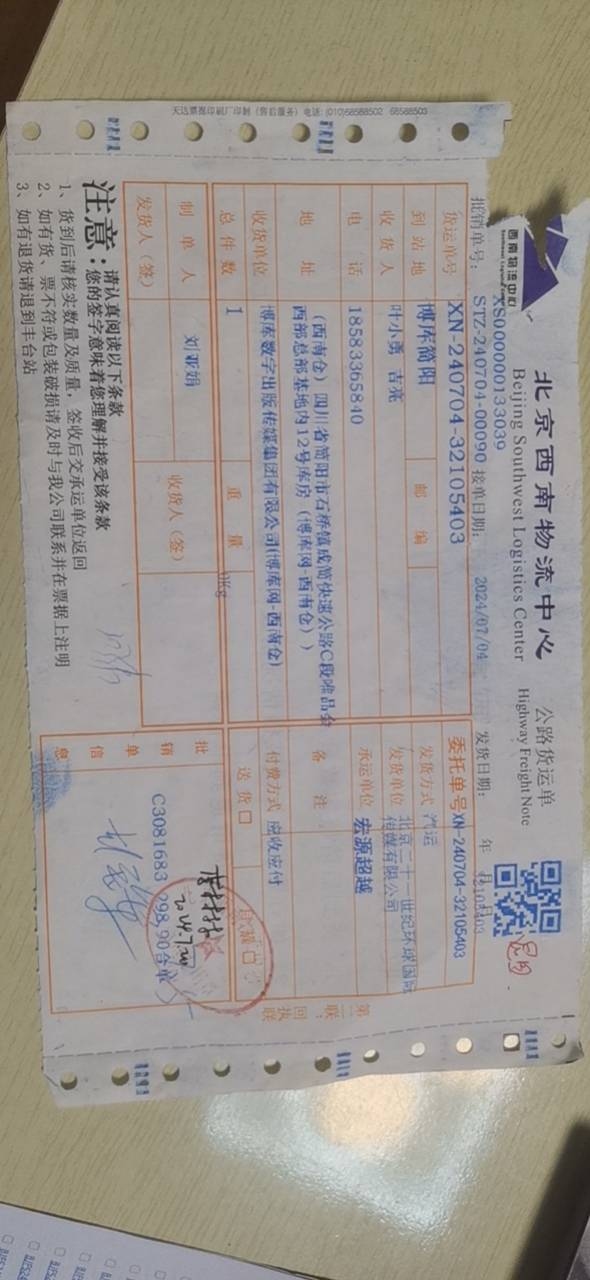 天达票据印刷厂印制（售后服务）电话：(010)68588502 68588503
西南物流中心
北京西南物流中心 公路货运单
Beijing Southwest Logistics Center Highway Freight Note
XS000000133039
批销单号： STZ-240704-00090 接单日期： 2024/07/04 发货日期： 年 月 日
32105403
货运单号 XN-240704-32105403 委托单号 XN-240704-32105403
到站地 博库简阳 邮编 发货方式 汽运
收货人 叶小勇 吉亮 发货单位 北京二十一世纪环球国际传媒有限公司
电话 18583365840 承运单位 宏源超越
地址 (西南仓) 四川省简阳市石桥镇成简快速公路C段唯品会
西部总部基地内12号库房 (博库网-西南仓) ) 备注
收货单位 博库数字出版传媒集团有限公司(博库网-西南仓) 付费方式 应收应付
总件数 1 重量 0Kg 送货□
制单人 刘亚娟 收货人（签）
发货人（签）
批销单信息 C3081683 298,90合单
2024.7.20
第二联：回执联
注意： 请认真阅读以下条款
您的签字意味着您理解并接受该条款
1、货到后请核实数量及质量，签收后交承运单位返回
2、如有货、票不符或包装破损请及时与我公司联系并在票据上注明
3、如有退货请退到丰台站